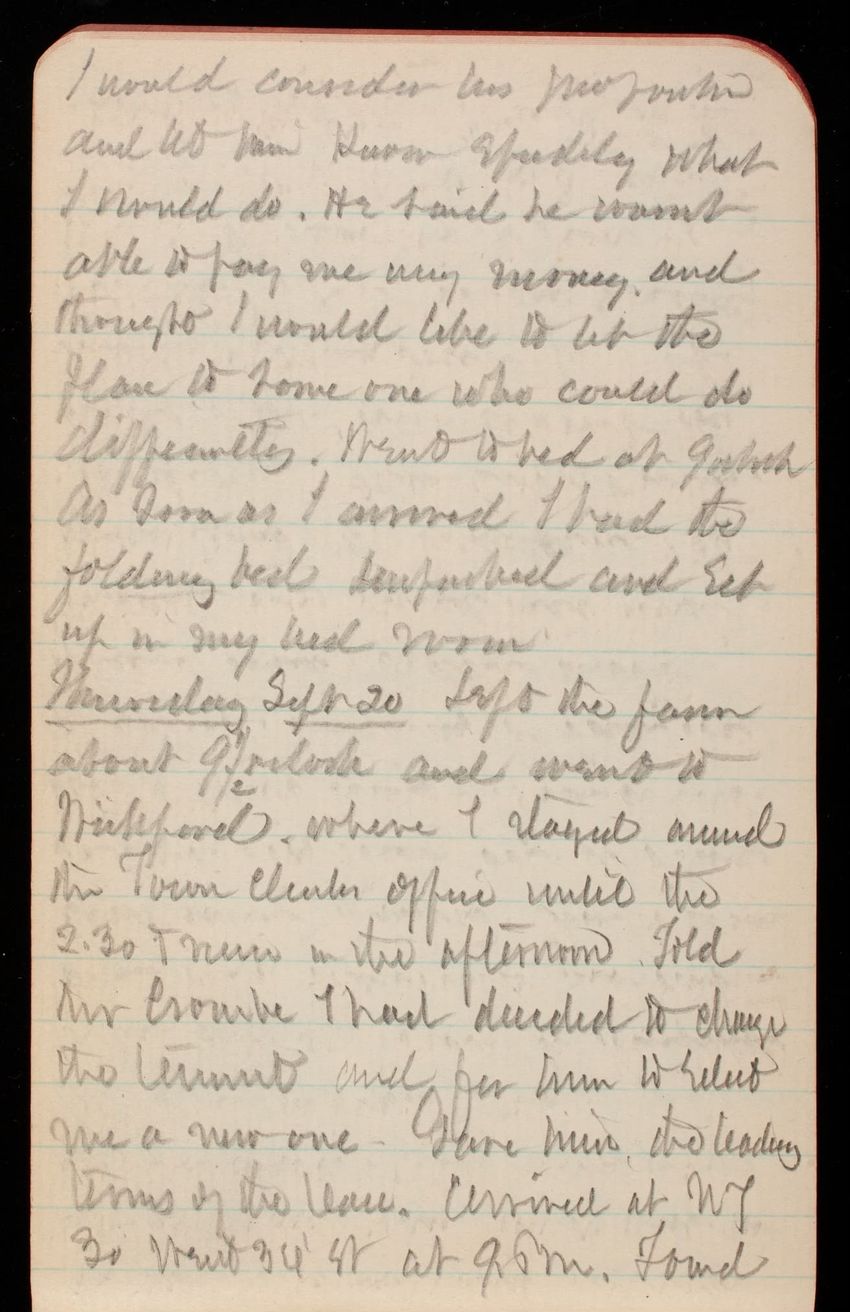 I would consider his proposition
and let him Know Speedily what
I would do. He said he wasnt
able to pay me my money, and
thought I would like to let the
place to some one who could do
differently. Went to bed at 9 oclock
As soon as I arrived I had the
folding bed unpacked and Set
up in my bed room
Thursday Sept 20 Left the farm
about 9 1/2 oclock and went to
Wickford. where I stayed around
the Town Clerks office until the
2.30 Train in the afternoon. Told
Mr Crombe I had decided to change
the tenant and for him to Select
me a new one - Gave him, the leading
terms of the lease. Arrived at NY
30 West 34 St at 9 PM. Found